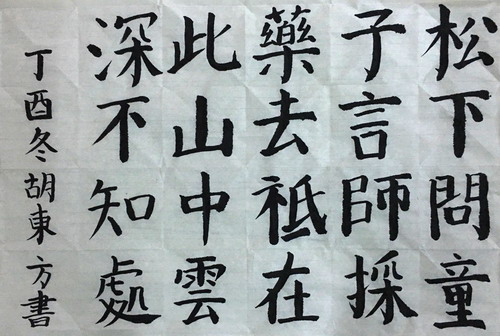 松下問童
子言師採
藥去祗在
此山中雲
深不知處
丁酉冬胡東方書